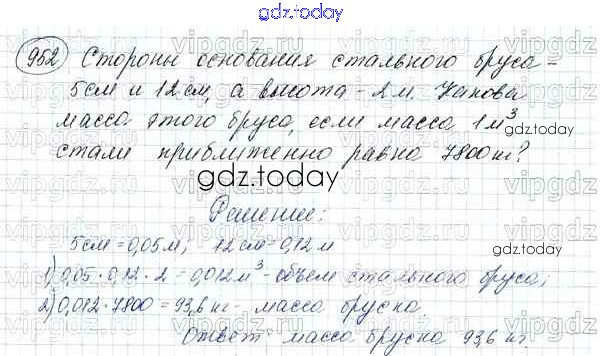 gdz.today
952 Стороны основания стального бруса =
5см и 12см, а высота - 2м. Какова
масса этого бруса, если масса 1м³
gdz.today
стали приближенно равна 7800кг?
gdz.today
Решение:
5см = 0,05м; 12см = 0,12м
1) 0,05 · 0,12 · 2 = 0,012м³ - объем стального бруса;
2) 0,012 · 7800 = 93,6 кг - масса бруска.
Ответ: масса бруска 93,6 кг